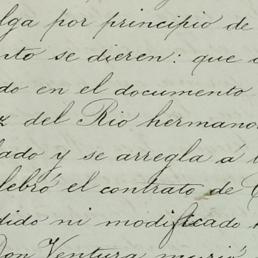 lga por principio de
nto se dieren: que
do en el documento
z del Rio hermano
lado y se arregla á
lebró el contrato de
dido ni modificado
Don Ventura murió